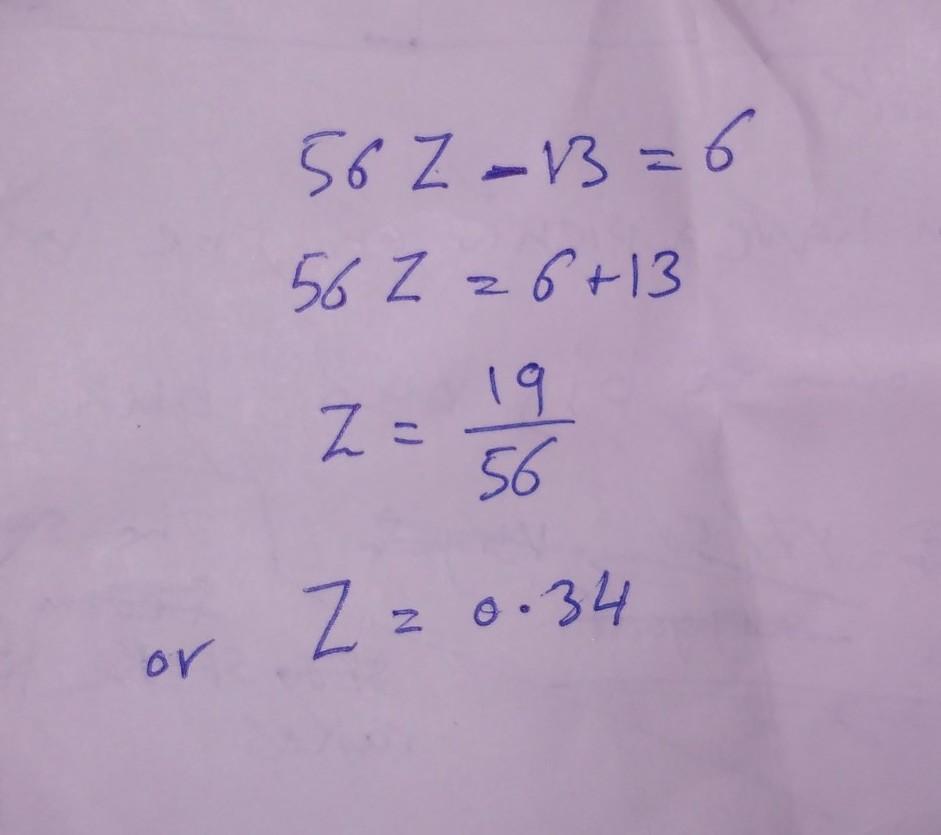 56 Z - 13 = 6
56 Z = 6 + 13
Z = 19/56
or Z = 0.34